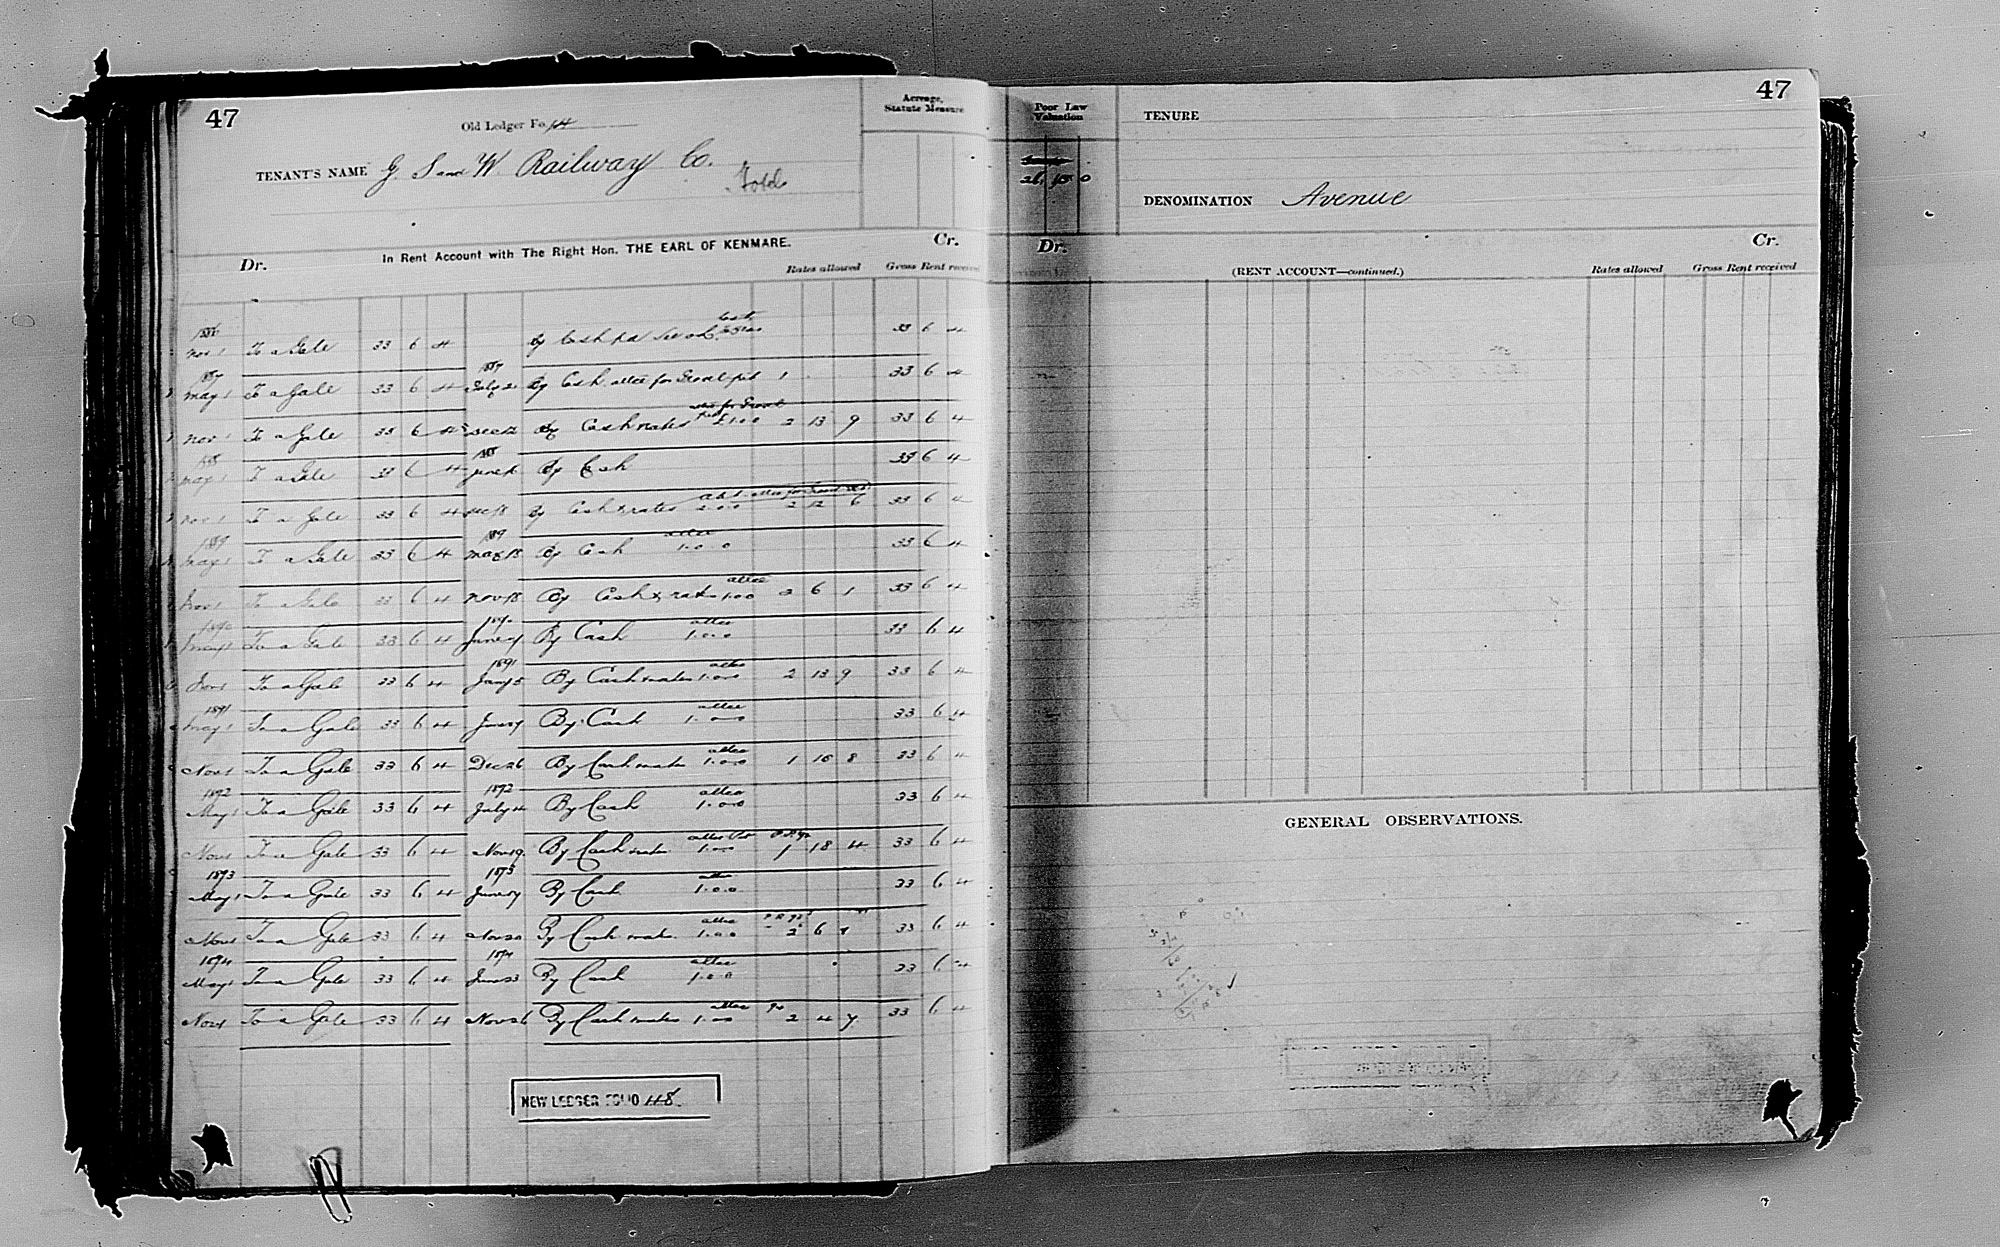 47
Old Ledger Fo. 14
TENANT'S NAME G. S and W. Railway Co.
Hotel
Acreage, Statute Measure
In Rent Account with The Right Hon. THE EARL OF KENMARE.
Dr. Cr.
Rates allowed Gross Rent received
1886
Nov 1 To a Gale 33 6 4 By Cash 33 6 4
1887 1887
May 1 To a Gale 33 6 4 July 2 By Cash allce for Gravel pit 1 33 6 4
allce for Gravel
Nov 1 To a Gale 33 6 4 Dec 12 By Cash & rates £1.0.0 2 13 9 33 6 4
1888 1888
May 1 To a Gale 33 6 4 June By Cash 33 6 4
Nov 1 To a Gale 33 6 4 Dec 18 By Cash & rates 2 12 6 33 6 4
1889 1889 allce
May 1 To a Gale 33 6 4 May 18 By Cash 1.0.0 33 6 4
allce
Nov 1 To a Gale 33 6 4 Nov 18 By Cash & rates 1.0.0 2 6 1 33 6 4
1890 1890 allce
May 1 To a Gale 33 6 4 June 7 By Cash 1.0.0 33 6 4
1891 allce
Nov 1 To a Gale 33 6 4 Jany 5 By Cash & rates 1.0.0 2 13 9 33 6 4
1891 allce
May 1 To a Gale 33 6 4 June 9 By Cash 1.0.0 33 6 4
allce
Nov 1 To a Gale 33 6 4 Dec 26 By Cash & rates 1.0.0 1 15 8 33 6 4
1892 1892 allce
May 1 To a Gale 33 6 4 July 4 By Cash 1.0.0 33 6 4
allce
Nov 1 To a Gale 33 6 4 Nov 19 By Cash & rates 1.0.0 1 18 4 33 6 4
1893 1893 allce
May 1 To a Gale 33 6 4 June 9 By Cash 1.0.0 33 6 4
allce P R 93
Nov 1 To a Gale 33 6 4 Nov 20 By Cash & rates 1.0.0 2 6 33 6 4
1894 1894 allce
May 1 To a Gale 33 6 4 June 23 By Cash 1.0.0 33 6 4
allce 94
Nov 1 To a Gale 33 6 4 Nov 26 By Cash & rates 1.0.0 2 4 7 33 6 4
NEW LEDGER FOLIO 118
47
Poor Law Valuation
26 15 0
TENURE
DENOMINATION Avenue
Dr. Cr.
(RENT ACCOUNT—continued.)
Rates allowed Gross Rent received
GENERAL OBSERVATIONS.